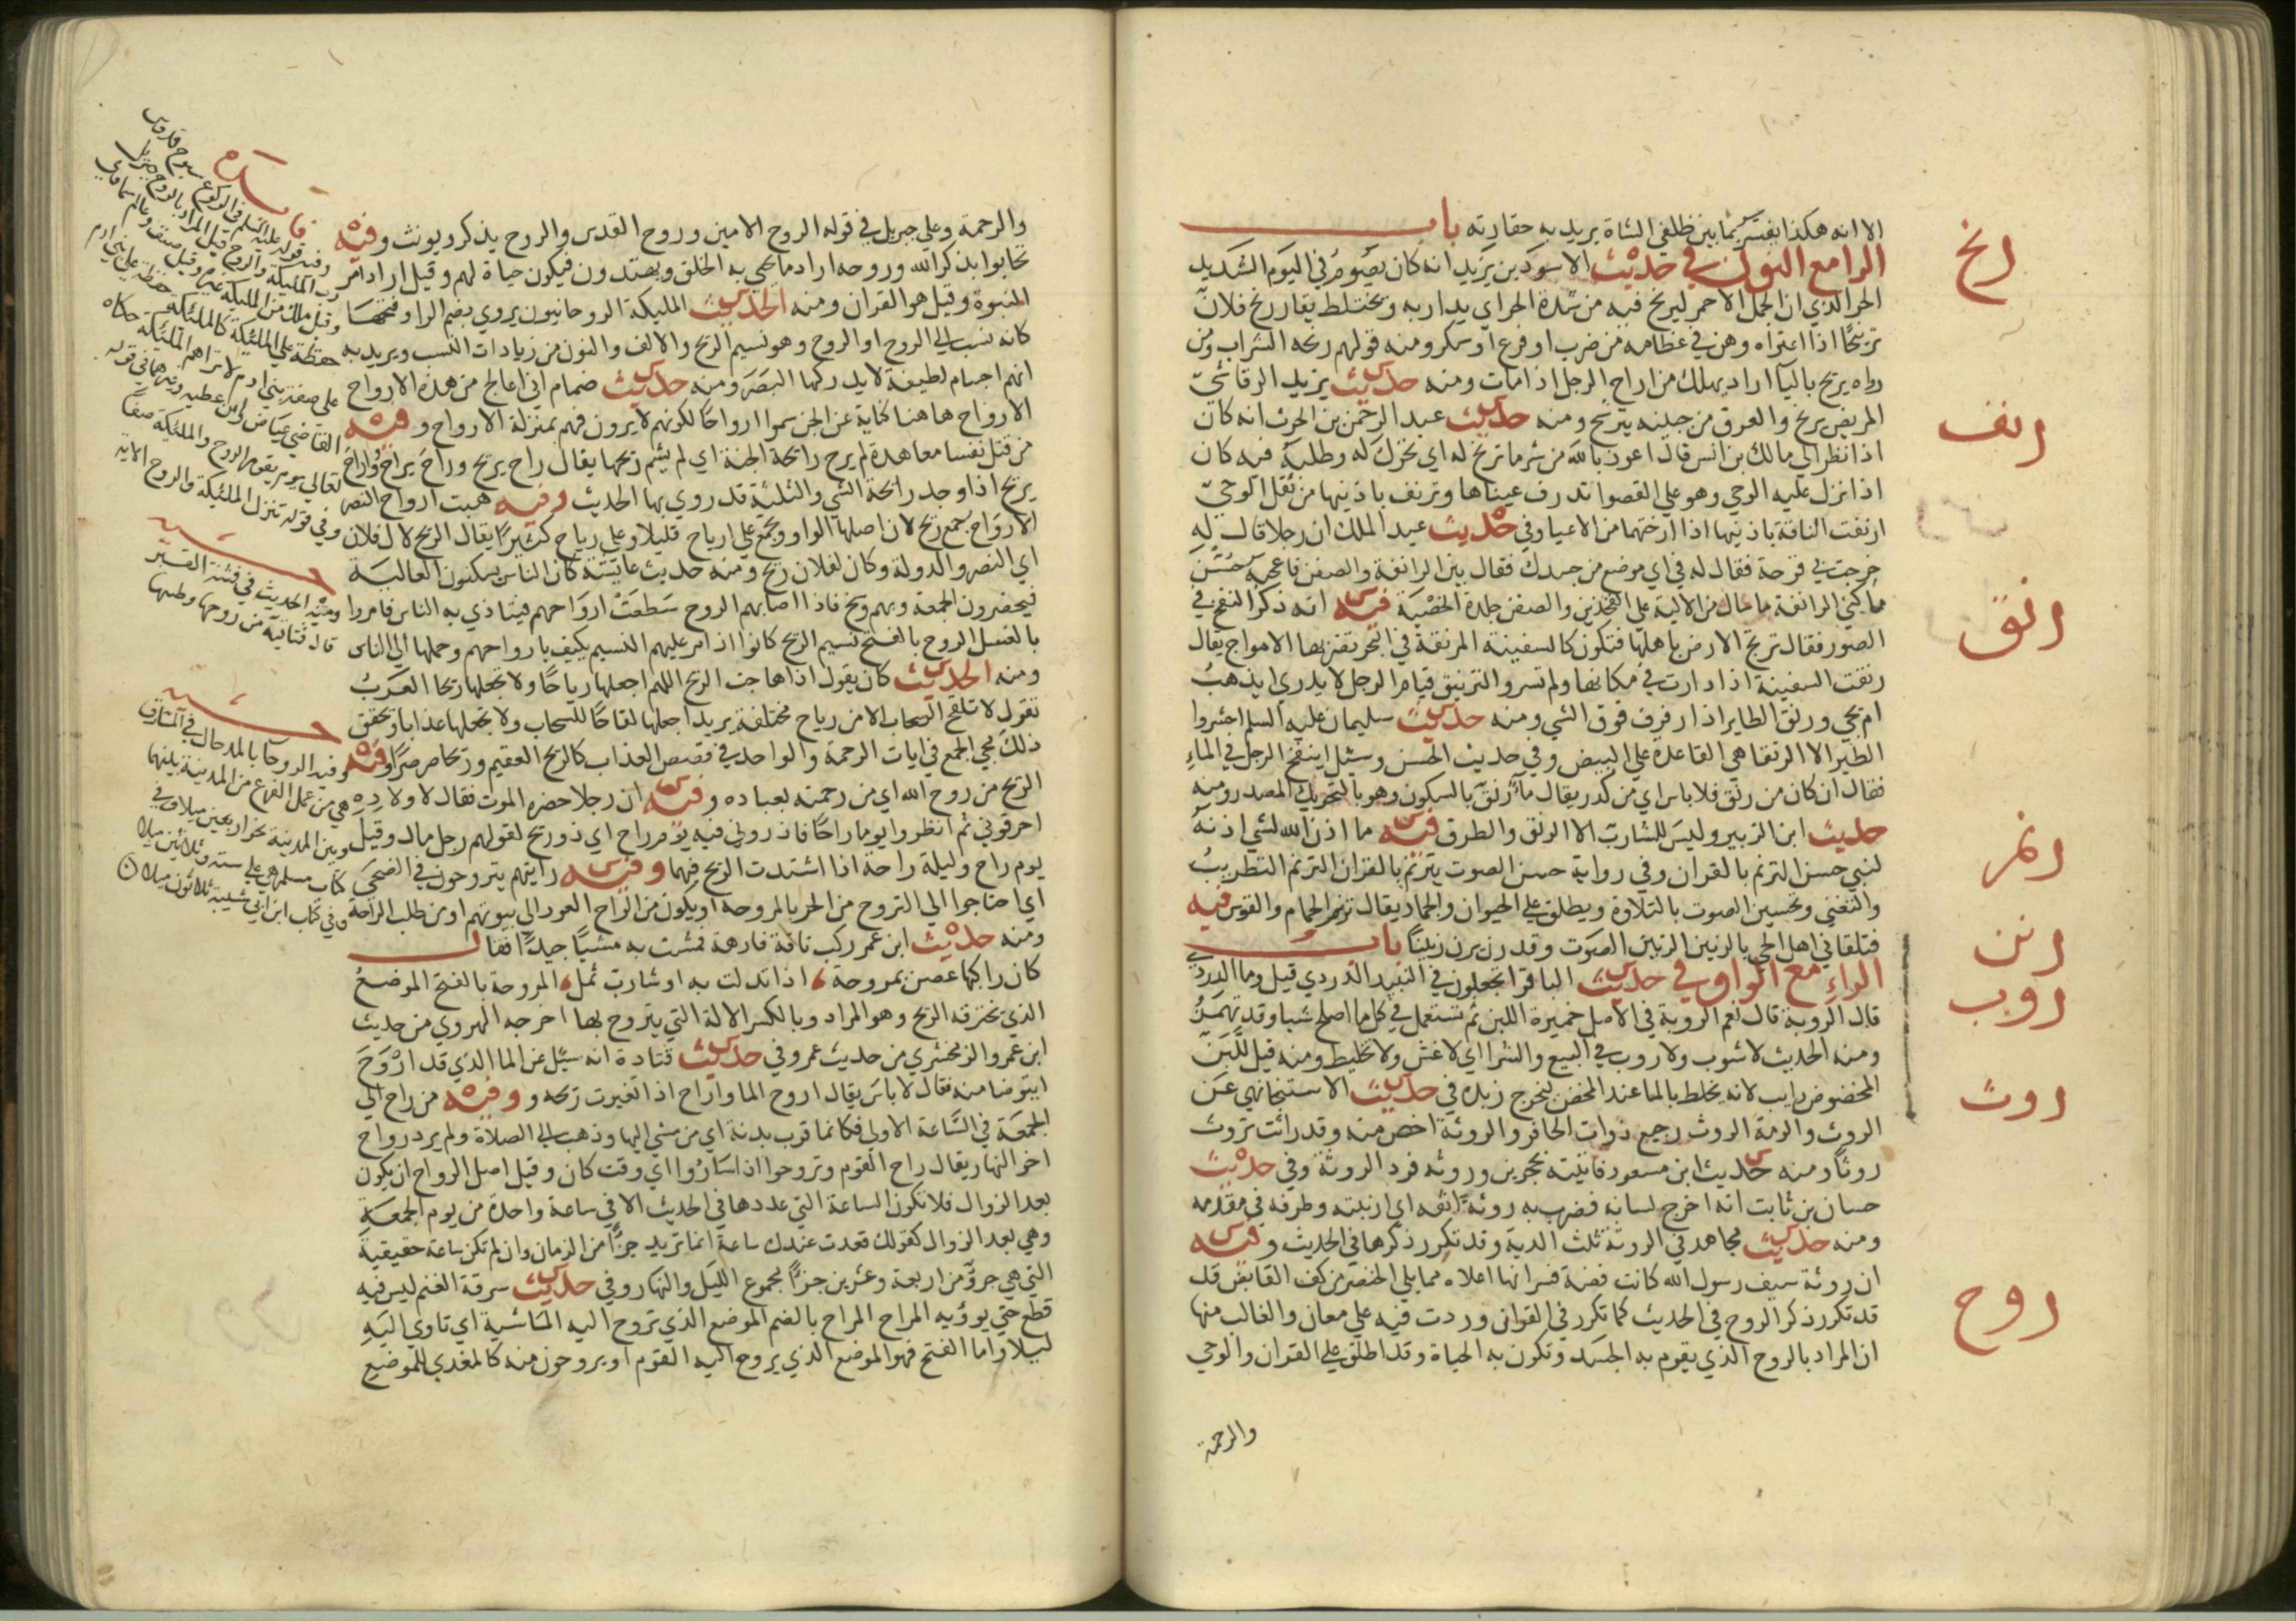 الا انه هكذا يفتر بما بين ظلفي الشاة يريد به حقارته باب
الرا مع النون في حديث الاسود بن يزيد انه كان يصوم في اليوم الشديد
الحر الذي ان الجمل الاحمر ليرنح فيه من شدة الحر اي يدار به ويختلط يقال رنح فلان
ترنيحا اذا اعتراه وهن في عظامه من ضرب او فزع او سكر ومنه قولهم رنحه الشراب ومن
رواه يريح باليا اراد يهلك من اراح الرجل اذا مات ومنه حديث يزيد الرقاشي
المريض يرنح والعرق من جبينه يترشح ومنه حديث عبد الرحمن بن الحرث انه كان
اذا نظر الي مالك بن انس قال اعوذ بالله من شر ما ترنح له اي تحرك له وطلبه فيه كان
اذا نزل عليه الوحي وهو علي القصوا تذرف عيناها وترنف باذنيها من ثقل الوحي
ارنفت الناقة باذنيها اذا ارختهما من الاعيا وفي حديث عبد الملك ان رجلا قال له
خرجت في قرحة فقال له في اي موضع من جسدك فقال بين الرانفة والصفن فاعجبه حسن
ما كني الرانفة ما سال من الالية علي الفخذين والصفن جلدة الخصية فيه انه ذكر النفخ في
الصور فقال ترتج الارض باهلها فتكون كالسفينة المرنقة في البحر تضربها الامواج يقال
رنقت السفينة اذا دارت في مكانها ولم تسر والترنيق قيام الرجل لا يدري ايذهب
ام يجي ورنق الطاير اذا رفرف فوق الشي ومنه حديث سليمان عليه السلم احشروا
الطير الا الرنقا هي القاعدة علي البيض وفي حديث الحسن وسئل اينفخ الرجل في الماء
فقال ان كان من رنق فلا باس اي من كدر يقال ماء رنق بالسكون وهو بالتحريك المصدر ومنه
حديث ابن الزبير وليس للشارب الا الرنق والطرق فيه ما اذن الله لشي اذنه
لنبي حسن الترنم بالقران وفي رواية حسن الصوت يترنم بالقران الترنم التطريب
والتغني وتحسين الصوت بالتلاوة ويطلق علي الحيوان والجماد يقال ترنم الحمام والقوس فيه
فتلقاني اهل الحي بالرنين الرنين الصوت وقد رن يرن رنينا باب
الراء مع الواو في حديث الباقر اتجعلون في النبيذ الدردي قيل وما الدردي
قال الروبة قال نعم الروبة في الاصل خميرة اللبن ثم تستعمل في كل ما اصلح شيا وقد تهمز
ومنه الحديث لا شوب ولا روب في البيع والشرا اي لا غش ولا تخليط ومنه قيل للبن
الممخوض رايب لانه يخلط بالما عند المخض ليخرج زبده في حديث الاستنجا نهي عن
الروث والرمة الروث رجيع ذوات الحافر والروثة اخص منه وقد راثت تروث
روثا ومنه حديث ابن مسعود فاتيته بحجرين وروثه فرد الروثة وفي حديث
حسان بن ثابت انه اخرج لسانه فضرب به روثة انفه اي ارنبته وطرفه في مقدمه
ومنه حديث مجاهد في الروثة ثلث الدية وقد تكرر ذكرها في الحديث وفيه
ان روثة سيف رسول الله كانت فضة فسر انها اعلاه مما يلي الخنصر من كف القابض قد
قد تكرر ذكر الروح في الحديث كما تكرر في القران وردت فيه علي معان والغالب منها
ان المراد بالروح الذي يقوم به الجسد وتكون به الحياة وقد اطلق علي القران والوحي
والرحمة
رنح
رنف
رنق
رنم
رنن
روب
روث
روح
والرحمة وعلي جبريل في قوله الروح الامين وروح القدس والروح يذكر ويونث وفيه
تحابوا بذكر الله وروحه اراد ما يحيي به الخلق ويهتدون فيكون حياة لهم وقيل اراد امر
النبوة وقيل هو القران ومنه الحديث المليكة الروحانيون يروي بضم الرا وفتحها
كانه نسب الي الروح او الروح وهو نسيم الريح والالف والنون من زيادات النسب ويريد به
انهم اجسام لطيفة لا يدركها البصر ومنه حديث ضمام اني اعالج من هذه الارواح
الارواح هاهنا كناية عن الجن سموا ارواحا لكونهم لا يرون فهم بمنزلة الارواح وفيه
من قتل نفسا معاهدة لم يرح رائحة الجنة اي لم يشم ريحها يقال راح يريح وراح يراح واراح
يريح اذا وجد رائحة الشي والثلثة قد روي بها الحديث وفيه هبت ارواح النصر
الارواح جمع ريح لان اصلها الواو وتجمع علي ارياح قليلا وعلي رياح كثيرا يقال الريح لال فلان
اي النصر والدولة وكان لفلان ريح ومنه حديث عائشة كان الناس يسكنون العالية
فيحضرون الجمعة وبهم وسخ فاذا اصابهم الروح سطعت ارواحهم فيتاذي به الناس فامروا
بالغسل الروح بالفتح نسيم الريح كانوا اذا مر عليهم النسيم يكيف بارواحهم وحملها الي الناس
ومنه الحديث كان يقول اذا هاجت الريح اللهم اجعلها رياحا ولا تجعلها ريحا العرب
تقول لا تلقح السحاب الا من رياح مختلفة يريد اجعلها لقاحا للسحاب ولا تجعلها عذابا وتحقق
ذلك مجي الجمع في ايات الرحمة والواحد في قصص العذاب كالريح العقيم وريحا صرصرا وفيه
الريح من روح الله اي من رحمته بعباده وفيه ان رجلا حضره الموت فقال لاولاده
احرقوني ثم انظروا يوما راحا فاذروني فيه يوم راح اي ذو ريح لقولهم رجل مال وقيل
يوم راح وليلة راحة اذا اشتدت الريح فيهما وفيه رايتهم يتروحون في الضحي
اي احتاجوا الي التروح من الحر بالمروحة او يكون من الرواح العود الي بيوتهم او من طلب الراحة
ومنه حديث ابن عمر ركب ناقة فارهة فمشت به مشيا جيدا فقال
كان راكبها غصن بمروحة اذا تدلت به او شارب ثمل المروحة بالفتح الموضع
الذي تخترقه الريح وهو المراد وبالكسر الالة التي يتروح بها اخرجه الهروي من حديث
ابن عمر والزمخشري من حديث عمر وفي حديث قتادة انه سئل عن الما الذي قد اروح
ايتوضا منه فقال لا باس يقال اروح الما واراح اذا تغيرت ريحه و وفيه من راح الي
الجمعة في الساعة الاولي فكانما قرب بدنة اي من مشي اليها وذهب الي الصلاة ولم يرد رواح
اخر النهار يقال راح القوم وتروحوا اذا ساروا اي وقت كان وقيل اصل الرواح ان يكون
بعد الزوال فلا تكون الساعة التي عددها في الحديث الا في ساعة واحدة من يوم الجمعة
وهي بعد الزوال كقولك قعدت عندك ساعة انما تريد جزءا من الزمان وان لم تكن ساعة حقيقية
التي هي جزؤ من اربعة وعشرين جزءا مجموع الليل والنهار وفي حديث سرقة الغنم ليس فيه
قطع حتي يوؤيه المراح المراح بالضم الموضع الذي تروح اليه الماشية اي تاوي اليه
ليلا واما الفتح فهو الموضع الذي يروح اليه القوم او يروحون منه كالمغدي للموضع
وفيه قوله عليه السلم في الركوع سبوح قدوس
رب المليكة والروح قيل المراد بالروح جبريل
وقيل ملك من المليكة
حفظة علي المليكة كالمليكة حفظة علي بني ادم
علي صفة بني ادم لا تراهم المليكة حكاه
القاضي عياض وابن عطية وغيرهما في قوله
تعالي يوم يقوم الروح والمليكة صفا
وفي قوله تنزل المليكة والروح الاية
ومنه الحديث في فتنة القبر
قال فياتيه من روحها وطيبها
وفيه الروحا بالمد حال في المشارق
هي من عمل الفرع من المدينة بينهما
وبين المدينة نحو اربعين ميلا وفي
كتاب مسلم هي علي ستة وثلاثين ميلا
وفي كتاب ابن ابي شيبة ثلاثون ميلا